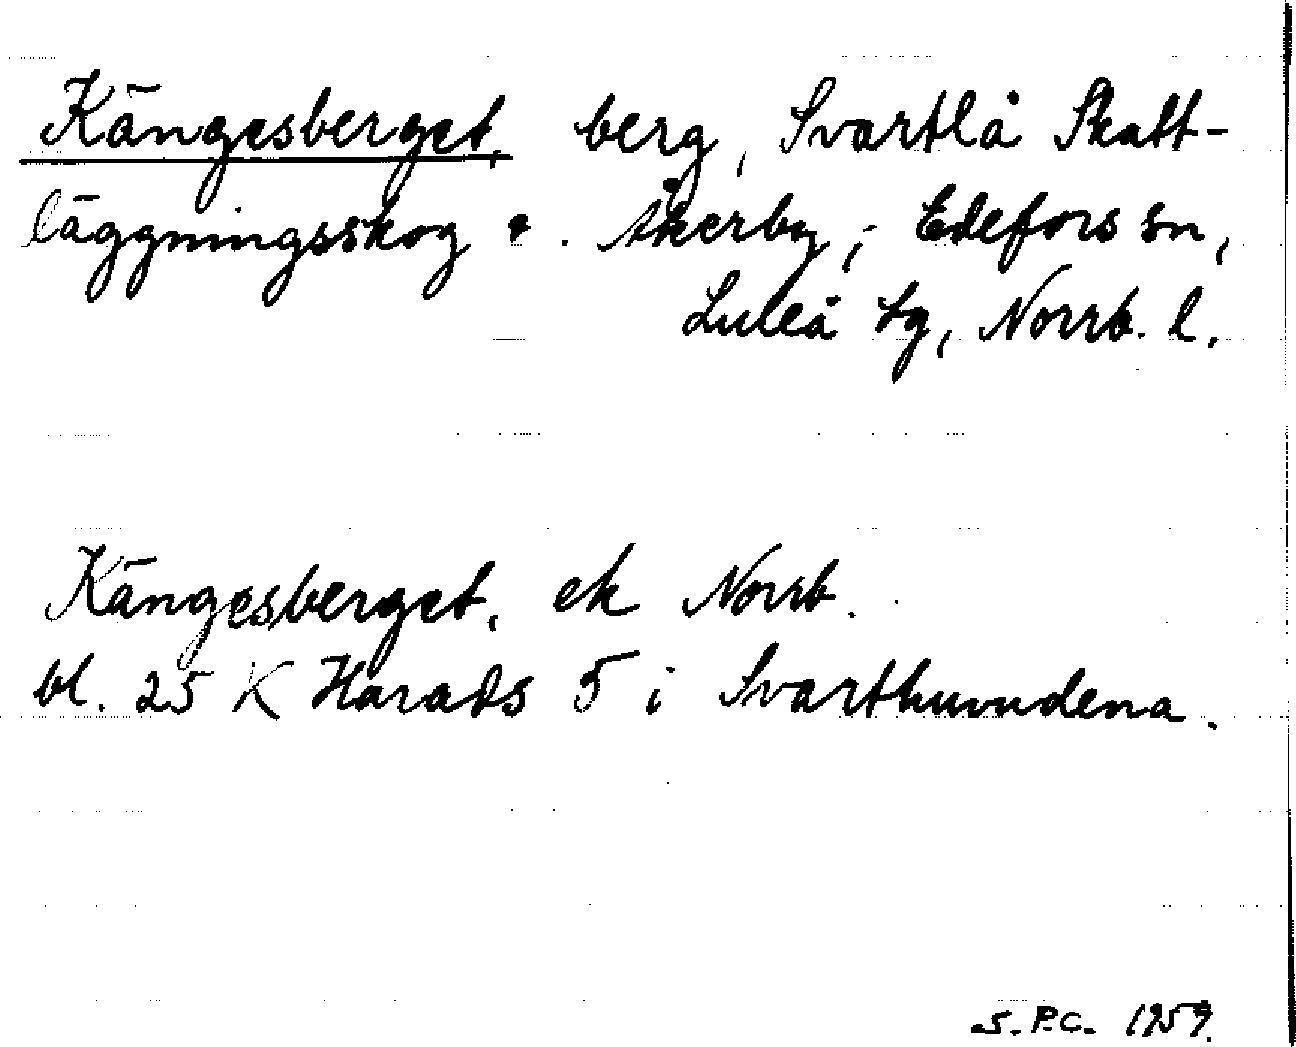 Kängesberget, berg, Svartlå Skatt-
läggningsskog o. Åkerby, Edefors sn,
Luleå tg, Norrb. l.
Kängesberget, ek Norrb.
bl. 25 K Harads 5 i Svarthuvudena.
S. P.C. 1959.